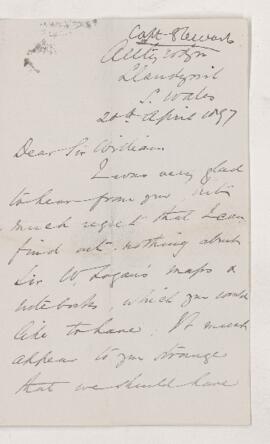 Capt Stewart
Alltyrodyn
Llandyssil
S. Wales
20th April 1897
Dear Sir William
I was very glad
to hear from you but
much regret that I can
find out nothing about
Sir W. Logan's maps &
notebooks, which you would
like to have. It must
appear to you strange
that we should have